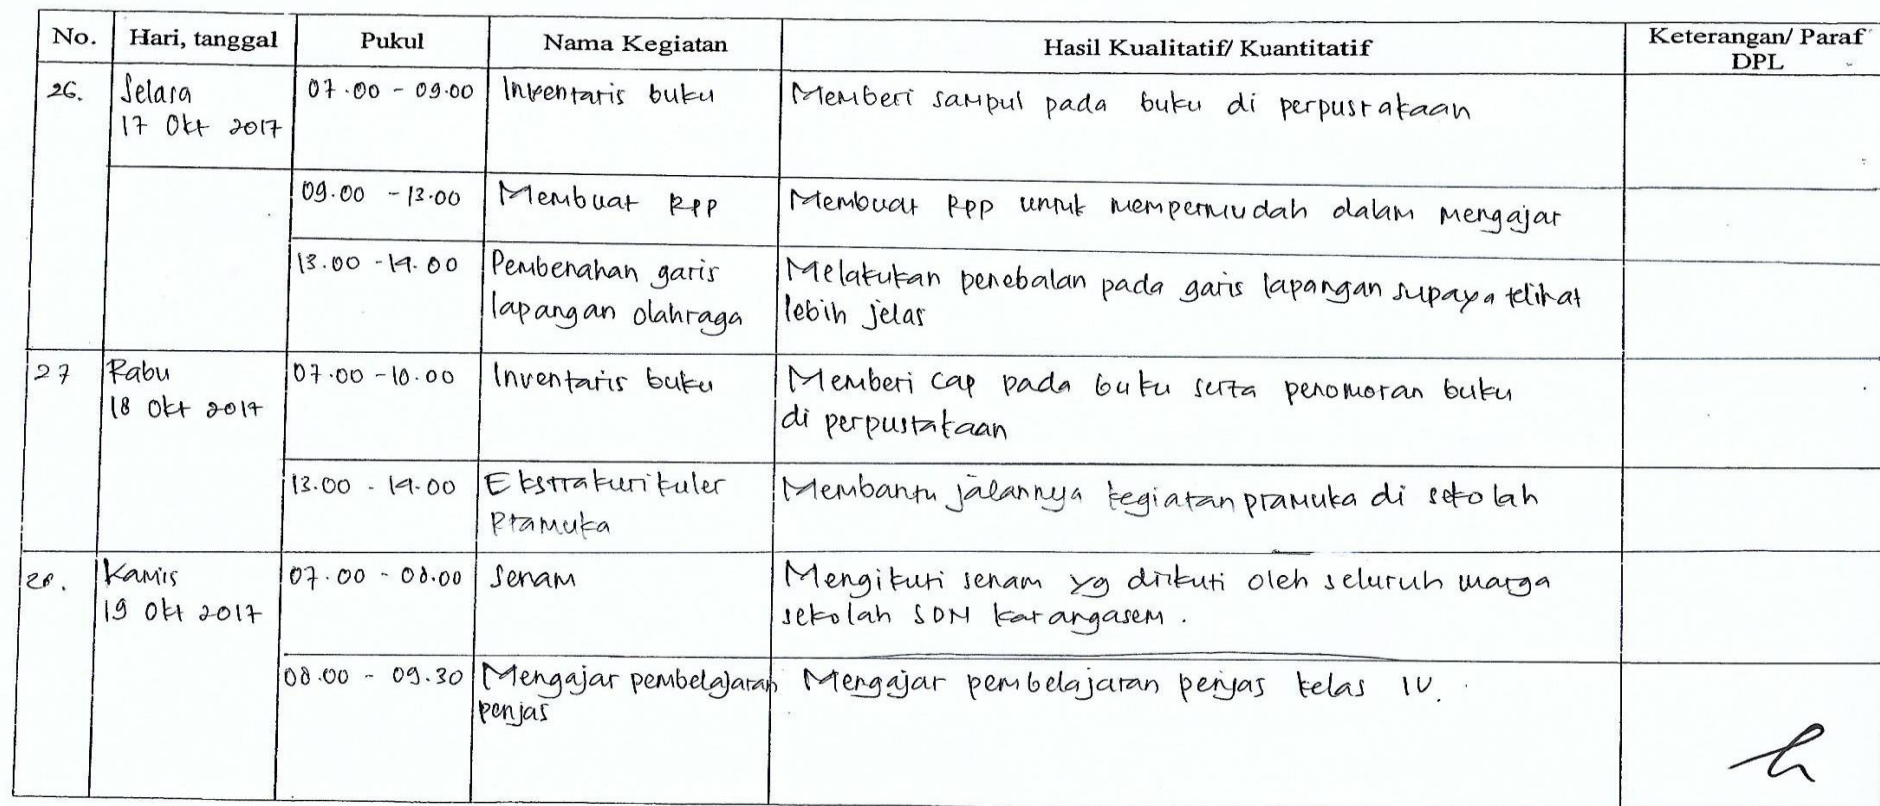 No. Hari, tanggal Pukul Nama Kegiatan Hasil Kualitatif/ Kuantitatif Keterangan/ Paraf
DPL
26. Selasa 07.00 - 09.00 Inventaris buku Memberi sampul pada buku di perpustakaan
17 Okt 2017
09.00 - 13.00 Membuat RPP Membuat RPP untuk mempermudah dalam mengajar
13.00 - 14.00 Pembenahan garis Melakukan penebalan pada garis lapangan supaya telihat
lapangan olahraga lebih jelas
27 Rabu 07.00 - 10.00 Inventaris buku Memberi cap pada buku serta penomoran buku
18 Okt 2017 di perpustakaan
13.00 - 14.00 Ekstrakurikuler Membantu jalannya kegiatan pramuka di sekolah
Pramuka
28. Kamis 07.00 - 08.00 Senam Mengikuti senam yg diikuti oleh seluruh warga
19 Okt 2017 sekolah SDN Karangasem.
08.00 - 09.30 Mengajar pembelajaran Mengajar pembelajaran penjas kelas IV.
penjas